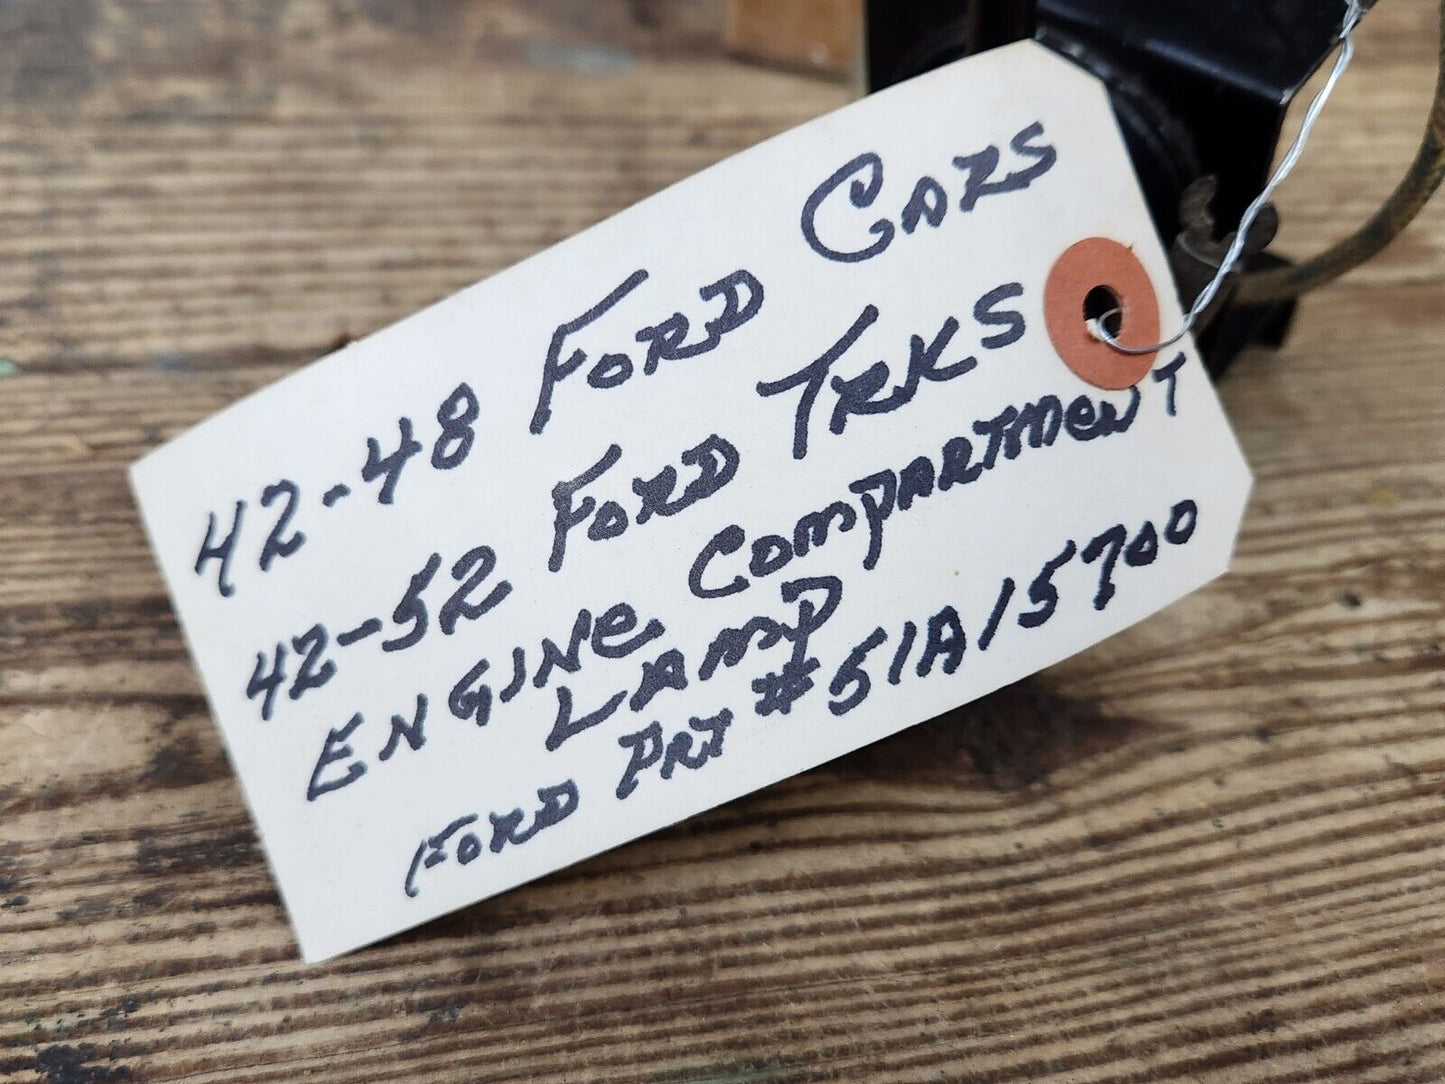 42-48 FORD CARS
42-52 FORD TRKS
ENGINe COMPARTMeNT
LAMP
FORD PRT #51A15700